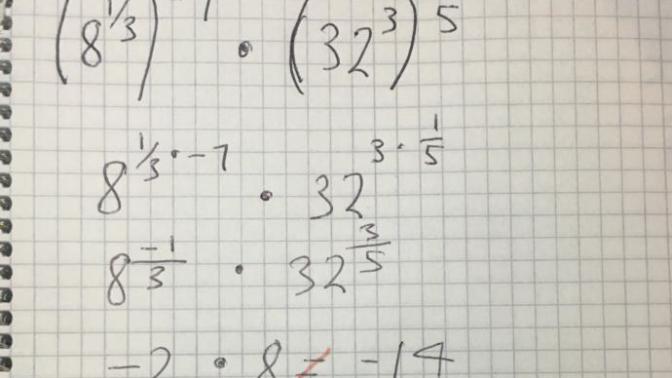 (8^1/3)^-1 · (32^3)^5
8^1/3·-1 · 32^3·1/5
8^-1/3 · 32^3/5
-2 · 8 = -14